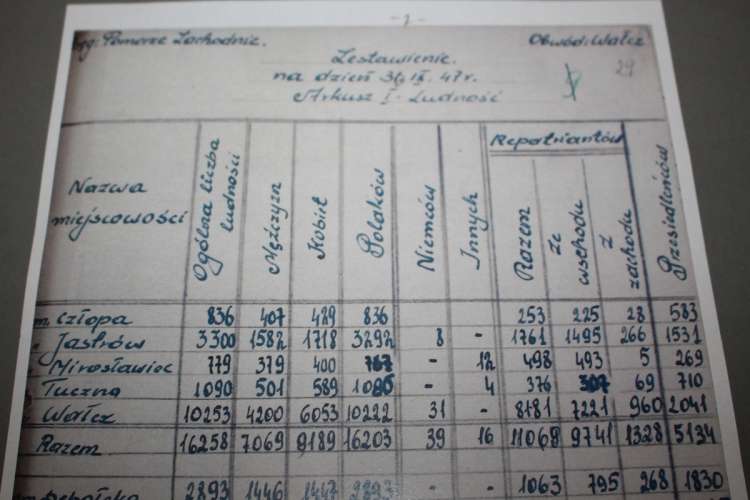 - 1 -
Pomorze Zachodnie. Obwód: Wałcz
29
Zestawienie.
na dzień 31,IX. 47 r.
Arkusz I - Ludność
Nazwa miejscowości Ogólna liczba ludności Mężczyzn Kobiet Polaków Niemców Innych Repatriantów Razem ze wschodu z zachodu Przesiedleńców
m. Człopa 836 407 429 836 253 225 28 583
Jastrów 3300 1582 1718 3292 8 - 1761 1495 266 1531
Mirosławiec 779 379 400 767 - 12 498 493 5 269
Tuczno 1090 501 589 1086 - 4 376 307 69 710
Wałcz 10253 4200 6053 10222 31 - 8181 7221 960 2041
Razem 16258 7069 9189 16203 39 16 11069 9741 1328 5134
2893 1446 1447 2893 1063 795 268 1830